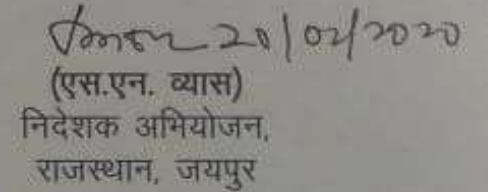 20/02/2020
(एस.एन. व्यास)
निदेशक अभियोजन,
राजस्थान, जयपुर